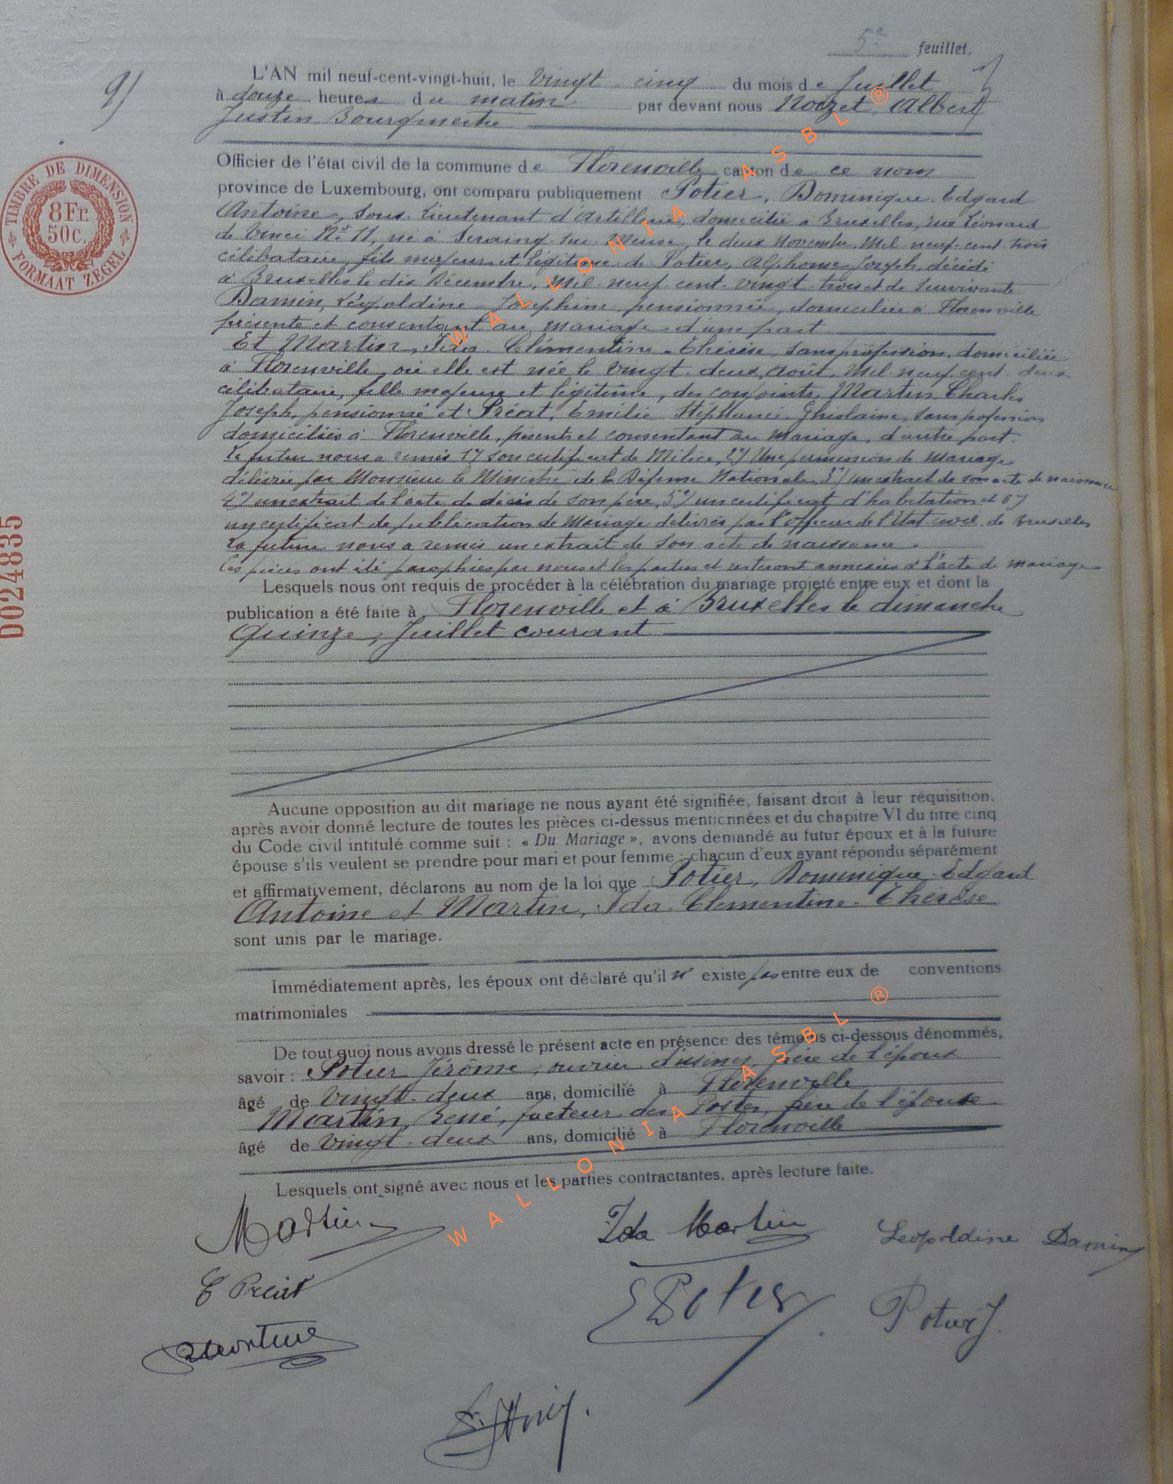 5e feuillet.
9)
L'AN mil neuf-cent-vingt-huit, le vingt cinq du mois de Juillet
à douze heures du matin par devant nous Noizet, Albert
Justin Bourgmestre
Officier de l'état civil de la commune de Florenville, canton de ce nom
province de Luxembourg, ont comparu publiquement Potier, Dominique-Edgard
Antoine, Sous-Lieutenant d'Artillerie, domicilié à Bruxelles, rue Léonard
de Vinci No 11, né à Seraing sur Meuse, le deux Novembre Mil neuf cent trois
célibataire, fils majeur et légitime de Potier, Alphonse Joseph, décédé
à Bruxelles le dix Décembre, Mil neuf cent vingt trois et de Survivante
Damin, Léopoldine Josephine, pensionnée, domiciliée à Florenville
présente et consentant au mariage d'une part
Et Martin, Ida Clémentine-Thérèse, sans profession, domiciliée
à Florenville, où elle est née le vingt-deux août, Mil neuf cent deux
célibataire, fille majeure et légitime, des conjoints, Martin Charles
Joseph, pensionné et Préat, Emilie Stéphanie Ghislaine, sans profession
domiciliés à Florenville, présents et consentant au mariage, d'autre part.
Le futur nous a remis 1°/ Son certificat de Milice, 2°/ Une permission de Mariage
délivrée par Monsieur le Ministre de la Défense Nationale, 3°/ un extrait de son acte de naissance
4°/ un extrait de l'acte de décès de son père, 5°/ un certificat d'habitation et 6°/
un certificat de publication de Mariage délivrés par l'officier de l'Etat civil de Bruxelles
La future nous a remis un extrait de son acte de naissance.
Ces pièces ont été paraphées par nous et les parties et resteront annexées à l'acte de mariage
Lesquels nous ont requis de procéder à la célébration du mariage projeté entre eux et dont la
publication a été faite à Florenville et à Bruxelles le dimanche
Quinze, Juillet courant
Aucune opposition au dit mariage ne nous ayant été signifiée, faisant droit à leur réquisition,
après avoir donné lecture de toutes les pièces ci-dessus mentionnées et du chapitre VI du titre cinq
du Code civil intitulé comme suit : « Du Mariage », avons demandé au futur époux et à la future
épouse s'ils veulent se prendre pour mari et pour femme ; chacun d'eux ayant répondu séparément
et affirmativement, déclarons au nom de la loi que Potier, Dominique-Edgard
Antoine et Martin, Ida Clementine-Thérèse
sont unis par le mariage.
Immédiatement après, les époux ont déclaré qu'il n'existe pas entre eux de conventions
matrimoniales
De tout quoi nous avons dressé le présent acte en présence des témoins ci-dessous dénommés,
savoir : Potier Jérome, ouvrier d'usines, frère de l'époux
âgé de vingt-deux ans, domicilié à Florenville
Martin, René, facteur des Postes, frère de l'épouse
âgé de vingt-deux ans, domicilié à Florenville
Lesquels ont signé avec nous et les parties contractantes, après lecture faite.
Martin
Ida Martin
Leopoldine Damin
E Préat
E Potier
Potier J.
TIMBRE DE DIMENSION
8 Fr.
50c.
FORMAAT ZEGEL
D024835
WALLONIA ASBL ®
WALLONIA ASBL ®